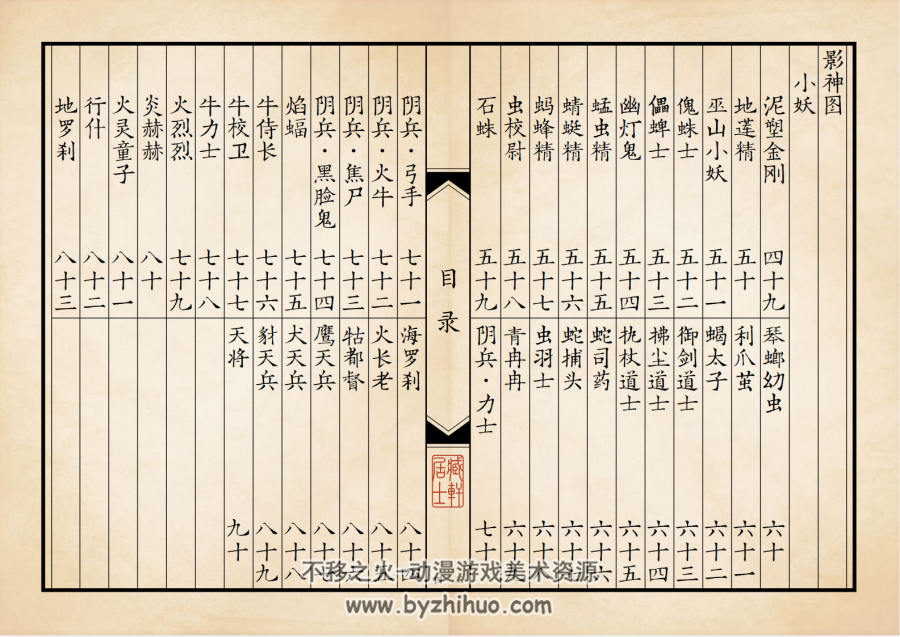 影神图
小妖
泥塑金刚 四十九
地莲精 五十
巫山小妖 五十一
傀蛛士 五十二
儡蜱士 五十三
幽灯鬼 五十四
蜢虫精 五十五
蜻蜓精 五十六
蚂蜂精 五十七
虫校尉 五十八
石蛛 五十九
琴螂幼虫 六十
利爪茧 六十一
蝎太子 六十二
御剑道士 六十三
拂尘道士 六十四
执杖道士 六十五
蛇司药 六十六
蛇捕头 六十七
虫羽士 六十八
青冉冉 六十九
阴兵·力士 七十
目录
阴兵·弓手 七十一
阴兵·火牛 七十二
阴兵·焦尸 七十三
阴兵·黑脸鬼 七十四
焰蝠 七十五
牛侍长 七十六
牛校卫 七十七
牛力士 七十八
火烈烈 七十九
炎赫赫 八十
火灵童子 八十一
行什 八十二
地罗刹 八十三
海罗刹 八十四
火长老 八十五
牯都督 八十六
鹰天兵 八十七
犬天兵 八十八
豺天兵 八十九
天将 九十
不移之火-动漫游戏美术资源
www.byzhihuo.com